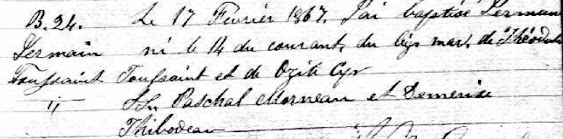 B. 24. Le 17 Février 1867. J'ai baptisé German
Germain né le 14 du courant, du légs mar. de Théodule
Toussaint Toussaint et de Ozite Cyr
" S.S. Paschal Morneau et Demerise
Thibodeau